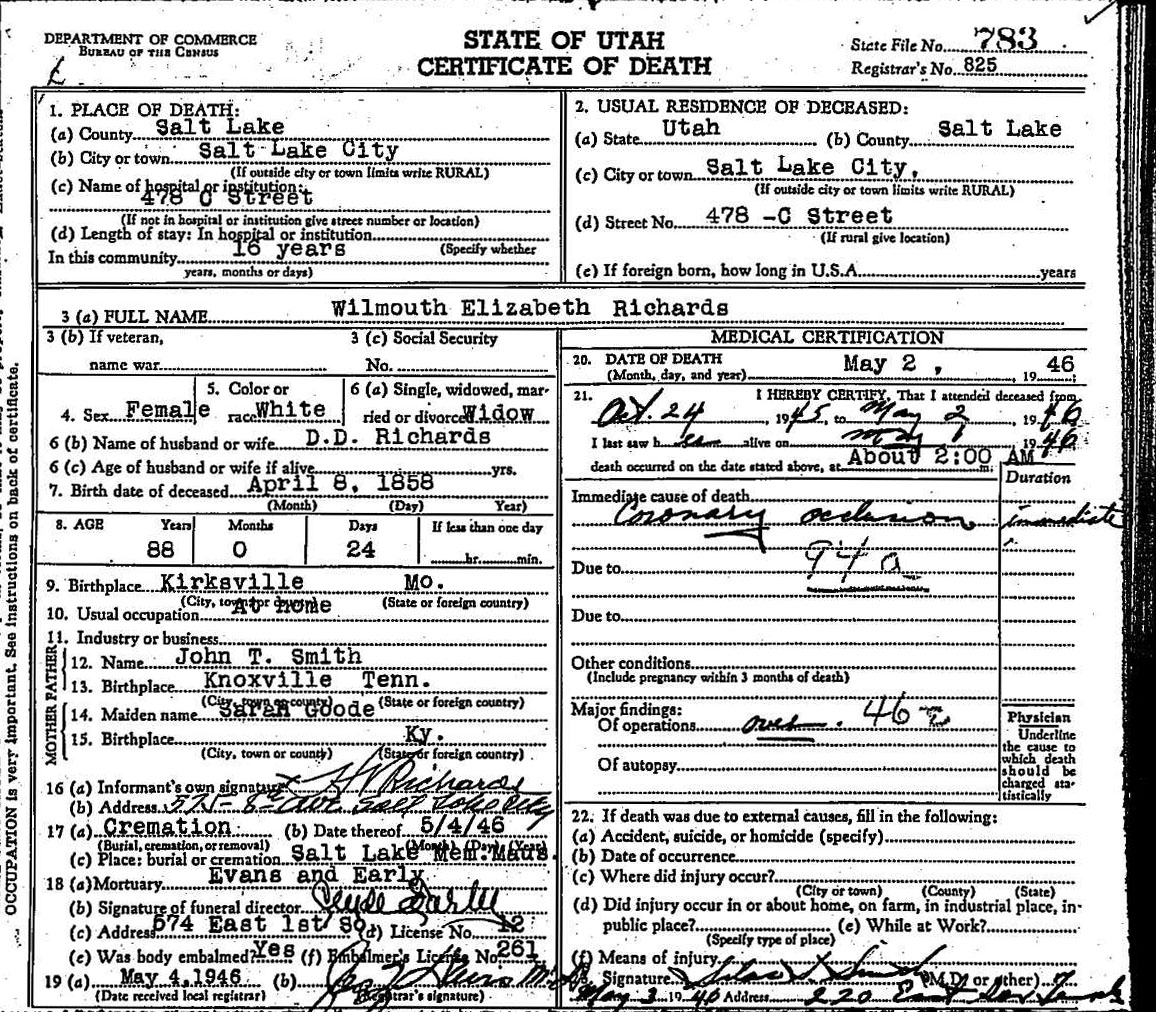 DEPARTMENT OF COMMERCE
BUREAU OF THE CENSUS
STATE OF UTAH
CERTIFICATE OF DEATH
State File No. 783
Registrar's No. 825
1. PLACE OF DEATH:
(a) County Salt Lake
(b) City or town Salt Lake City
(If outside city or town limits write RURAL)
(c) Name of hospital or institution:
478 C Street
(If not in hospital or institution give street number or location)
(d) Length of stay: In hospital or institution
In this community 16 years (Specify whether
years, months or days)
2. USUAL RESIDENCE OF DECEASED:
(a) State Utah (b) County Salt Lake
(c) City or town Salt Lake City,
(If outside city or town limits write RURAL)
(d) Street No. 478 -C Street
(If rural give location)
(e) If foreign born, how long in U.S.A. years
3 (a) FULL NAME Wilmouth Elizabeth Richards
3 (b) If veteran, 3 (c) Social Security
name war No.
4. Sex Female 5. Color or race White 6 (a) Single, widowed, married or divorced Widow
6 (b) Name of husband or wife D.D. Richards
6 (c) Age of husband or wife if alive yrs.
7. Birth date of deceased April 8, 1858
(Month) (Day) Year)
8. AGE Years Months Days If less than one day
88 0 24 hr. min.
9. Birthplace Kirksville Mo.
(City, town or county) (State or foreign country)
10. Usual occupation At home
11. Industry or business
FATHER
12. Name John T. Smith
13. Birthplace Knoxville Tenn.
(City, town or county) (State or foreign country)
MOTHER
14. Maiden name Sarah Goode
15. Birthplace Ky.
(City, town or county) (State or foreign country)
16 (a) Informant's own signature x Richards
(b) Address 575- 8th Ave Salt Lake City
17 (a) Cremation (b) Date thereof 5/4/46
(Burial, cremation, or removal) (Month) (Day) (Year)
(c) Place: burial or cremation Salt Lake Mem. Maus.
18 (a) Mortuary Evans and Early
(b) Signature of funeral director Clyde Early
(c) Address 574 East 1st So (d) License No. 12
(e) Was body embalmed? Yes (f) Embalmer's License No 261
19 (a) May 4,1946 (b)
(Date received local registrar) (Registrar's signature)
MEDICAL CERTIFICATION
20. DATE OF DEATH May 2, 19 46
(Month, day, and year)
21. I HEREBY CERTIFY, That I attended deceased from
Oct. 24, 1945, to May 2, 1946
I last saw her alive on May 1 1946
death occurred on the date stated above, at About 2:00 AM m.
Duration
Immediate cause of death
Coronary occlusion immediate
94 a
Due to
Due to
Other conditions
(Include pregnancy within 3 months of death)
Major findings:
Of operations 46
Of autopsy
Physician
Underline
the cause to
which death
should be
charged sta-
tistically
22. If death was due to external causes, fill in the following:
(a) Accident, suicide, or homicide (specify)
(b) Date of occurrence
(c) Where did injury occur?
(City or town) (County) (State)
(d) Did injury occur in or about home, on farm, in industrial place, in-
public place? (e) While at Work?
(Specify type of place)
(f) Means of injury
Signature Silas S. Smith (M.D. or other)
May 3 1946 Address 220 East So. Temple
OCCUPATION is very important. See instructions on back of certificate.